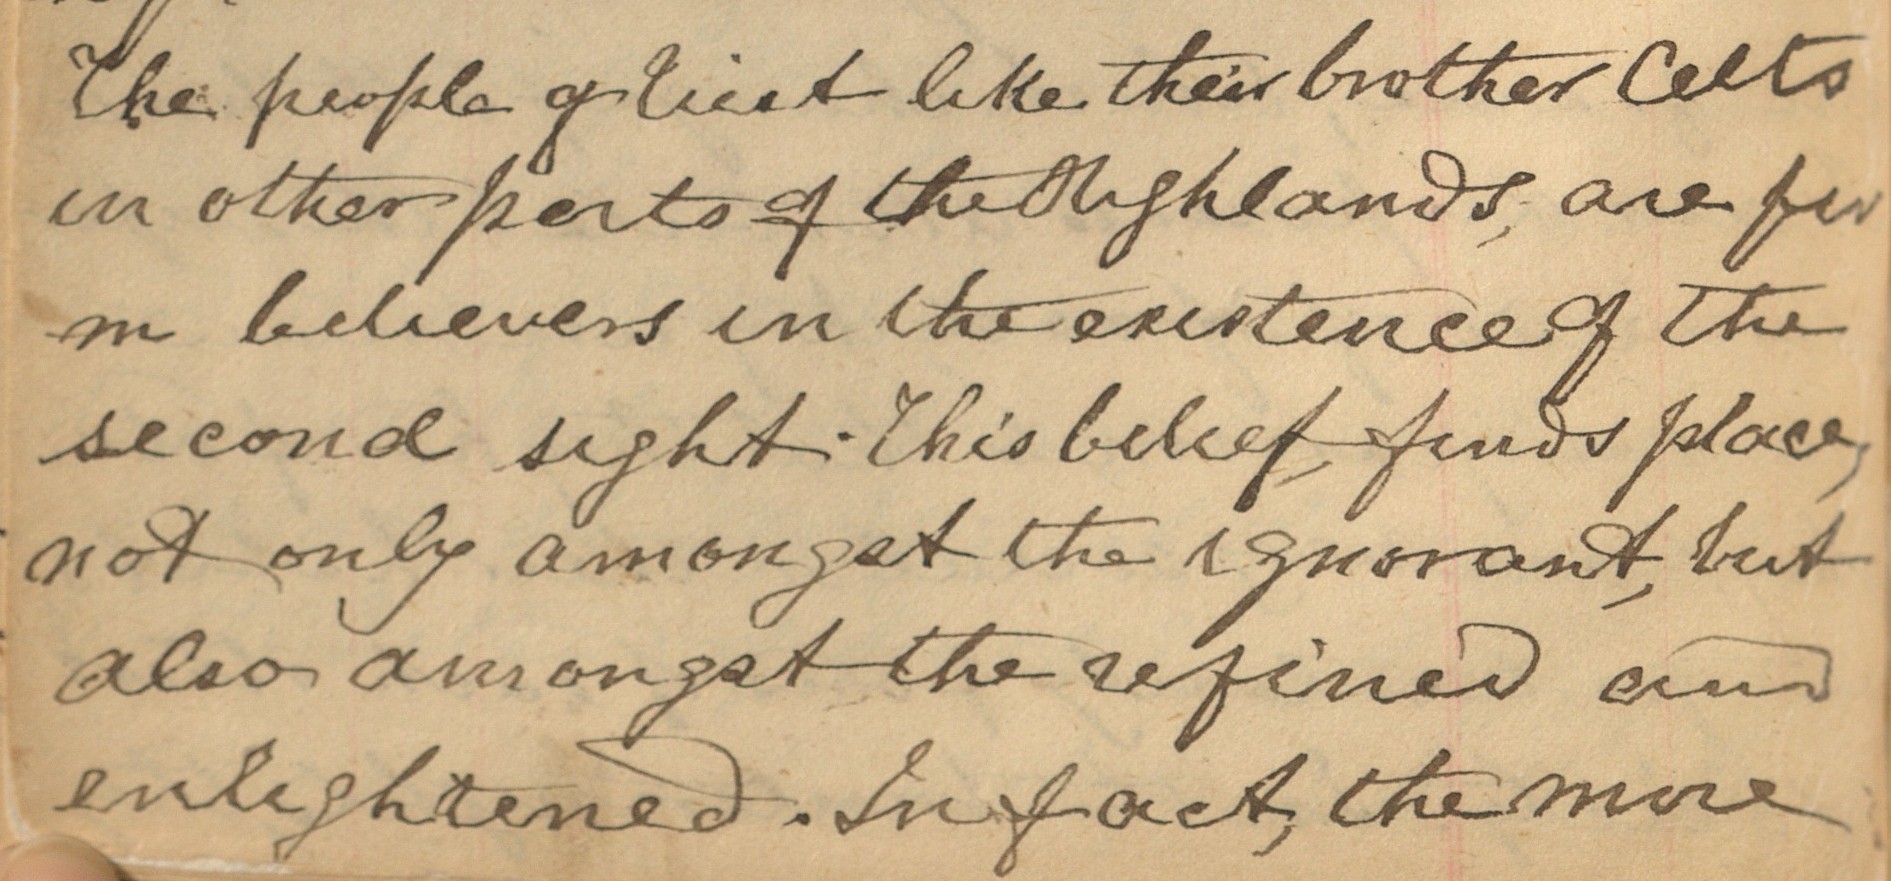 The people of Uist like their brother Celts
in other parts of the Highlands, are fir
m believers in the existence of the
second sight. This belief, finds place,
not only amongst the ignorant, but
also amongst the refined and
enlightened. In fact, the more